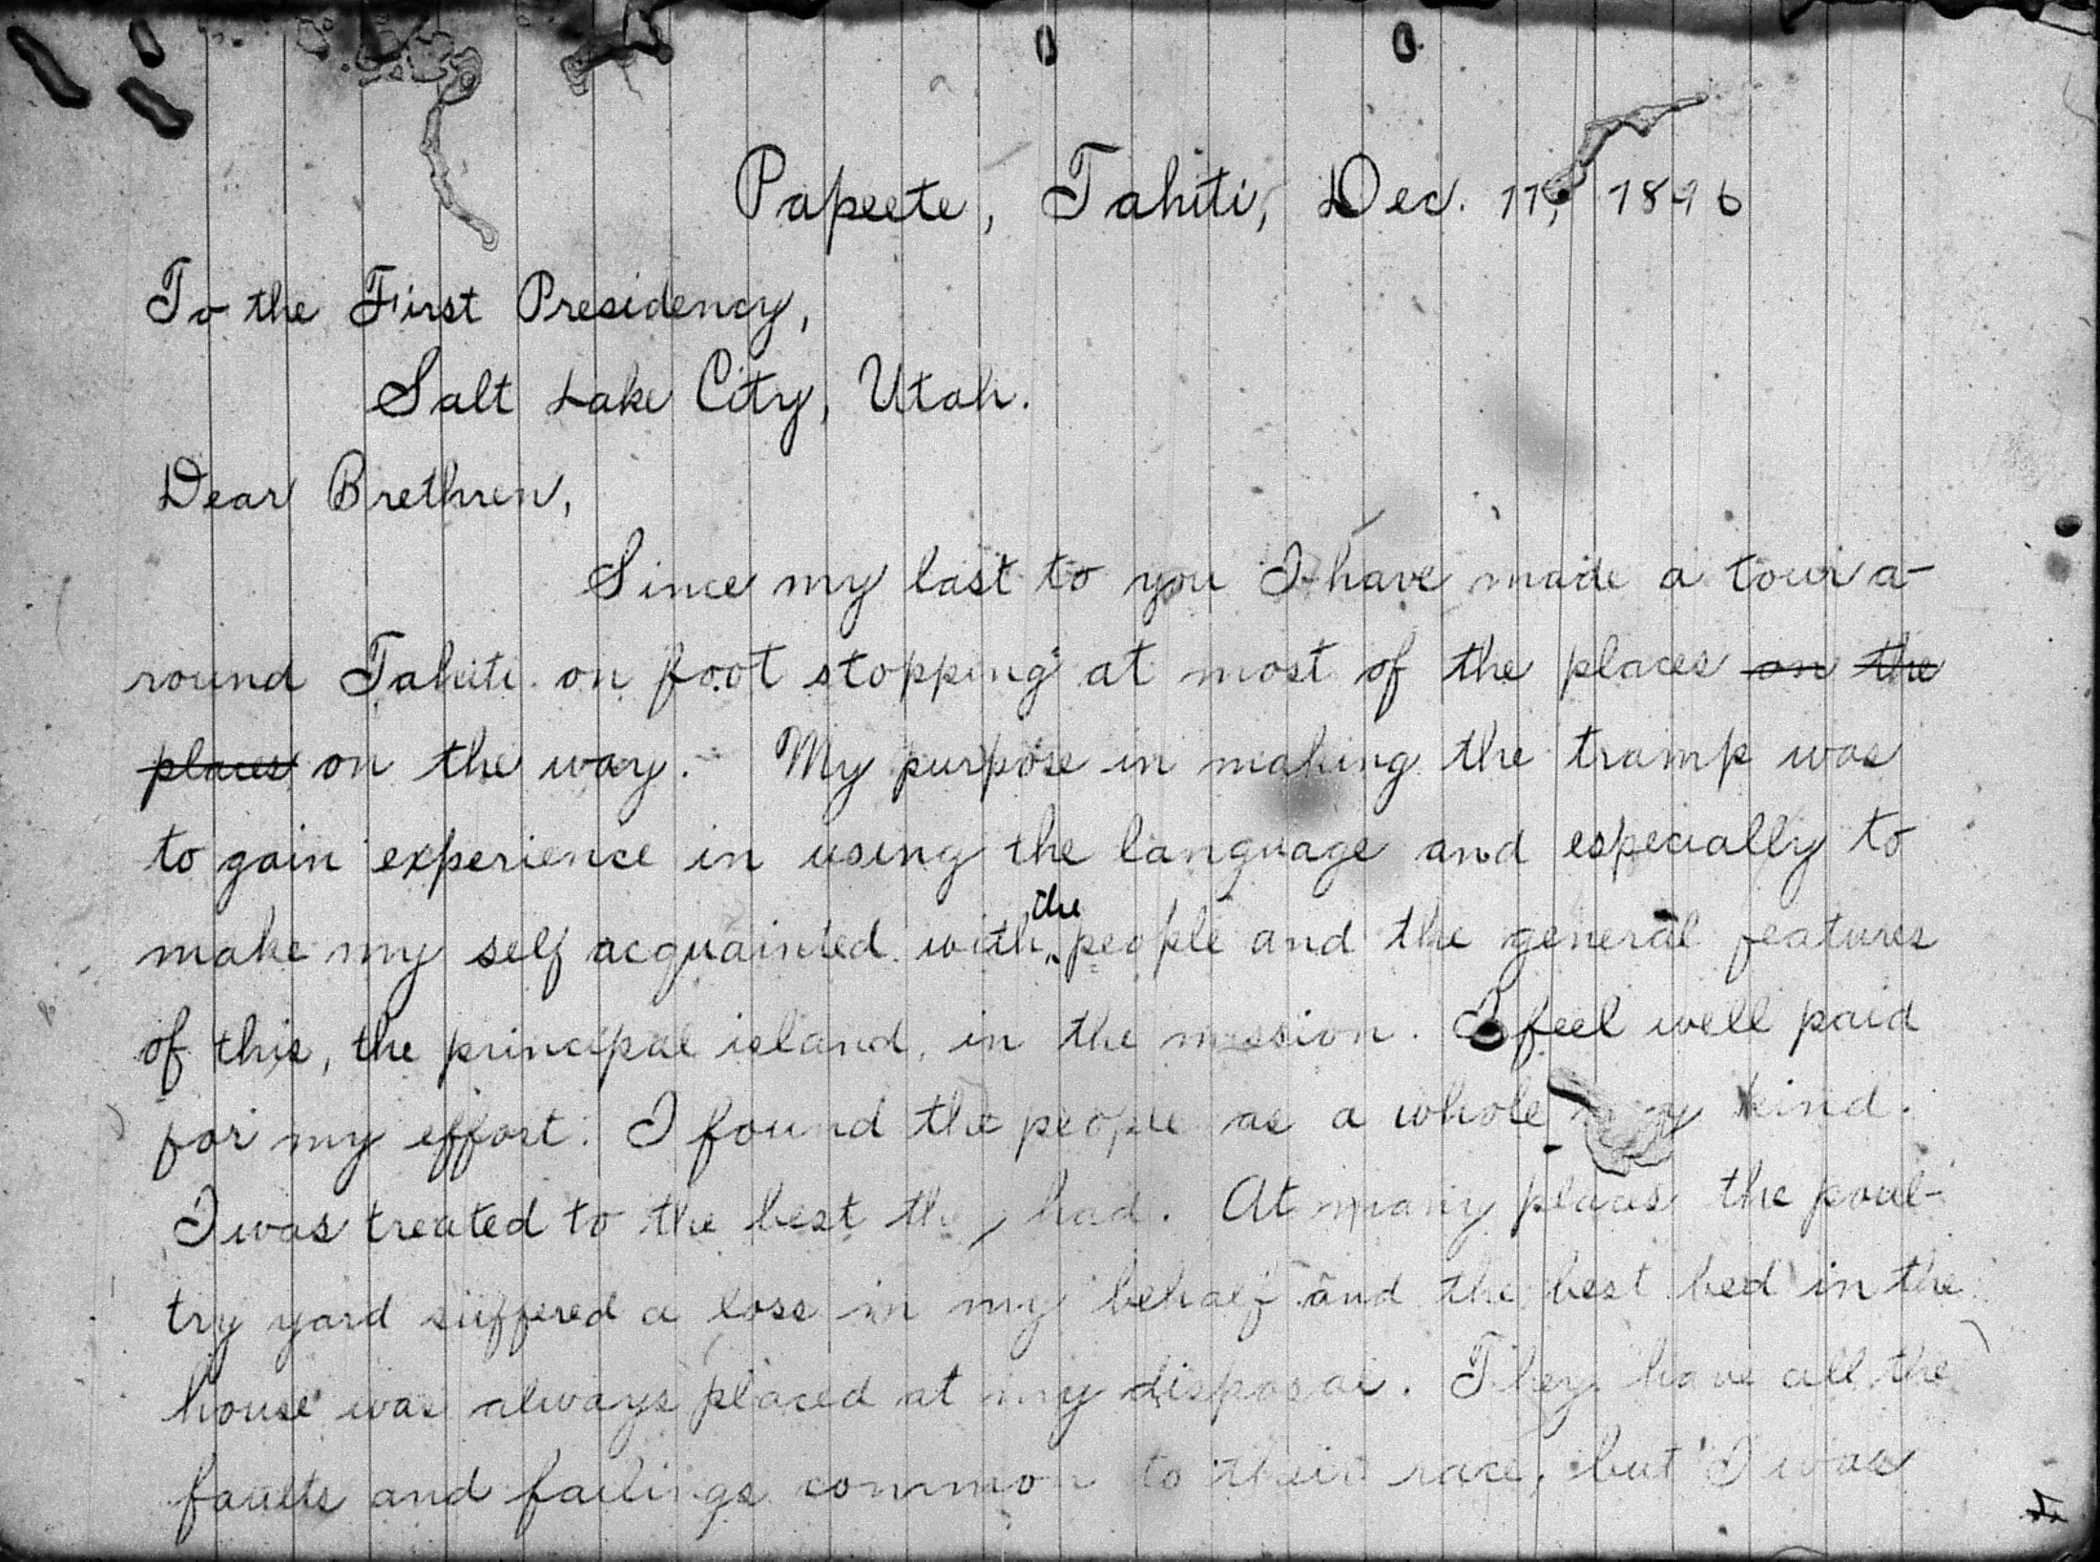 Papeete, Tahiti, Dec. 11, 1896
To the First Presidency,
Salt Lake City, Utah.
Dear Brethren,
Since my last to you I have made a tour a-
round Tahiti on foot stopping at most of the places on the
places on the way. My purpose in making the tramp was
to gain experience in using the language and especially to
make my self acquainted with the people and the general features
of this, the principal island, in the mission. I feel well paid
for my effort. I found the people as a whole very kind.
I was treated to the best they had. At many places the poul-
try yard suffered a loss in my behalf and the best bed in the
house was always placed at my disposal. They have all the
faults and failings common to their race, but I was